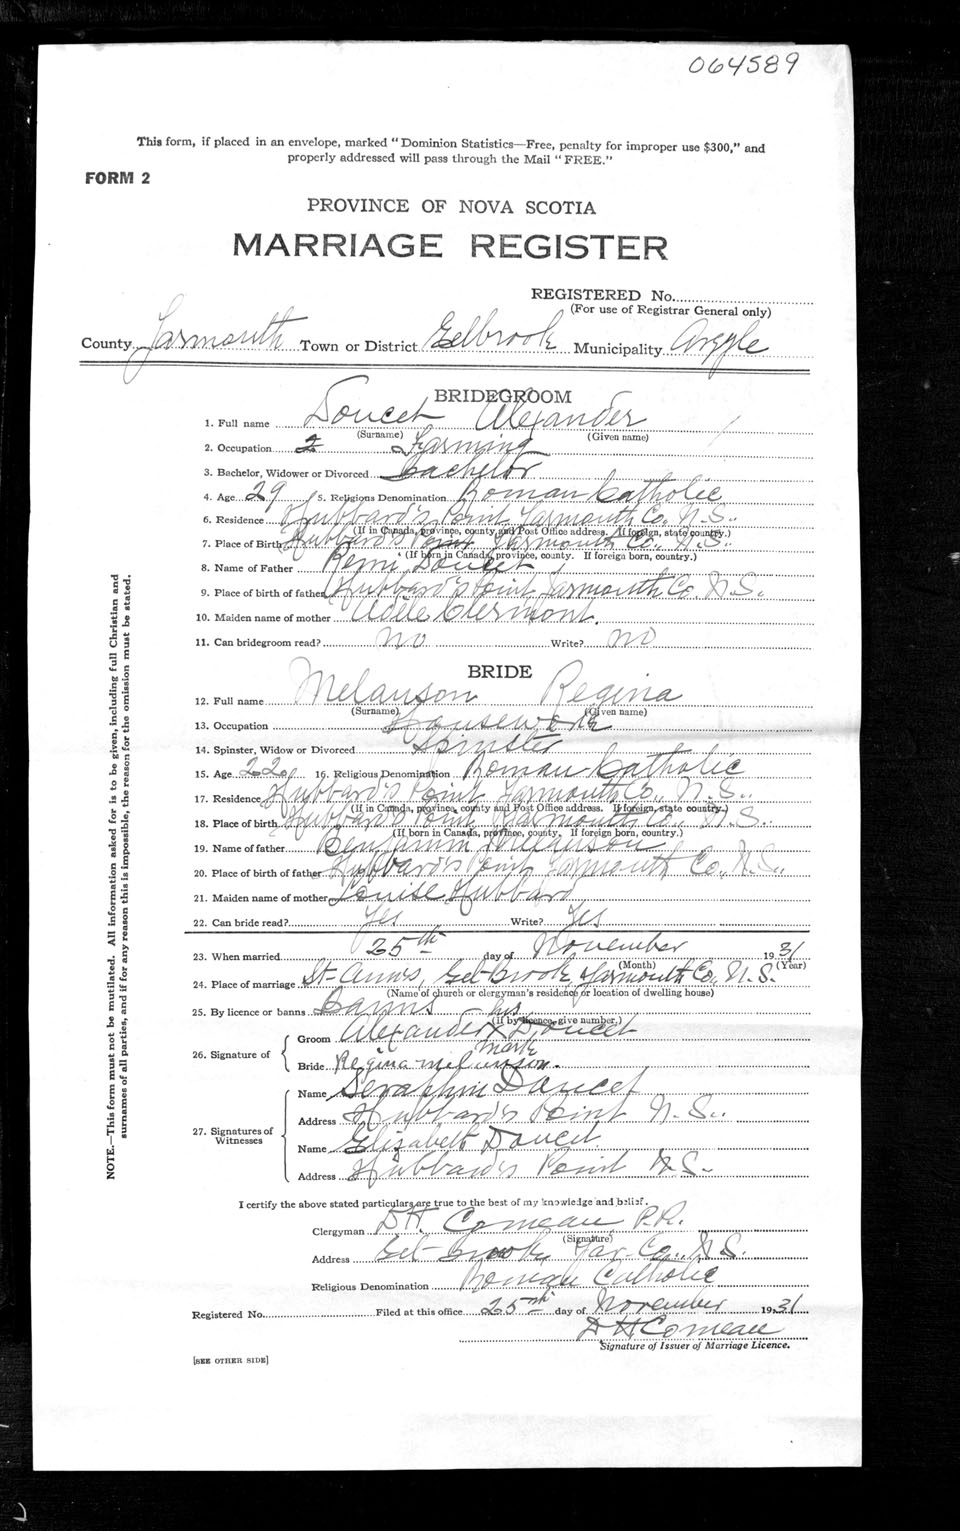 064589
This form, if placed in an envelope, marked "Dominion Statistics—Free, penalty for improper use $300," and
properly addressed will pass through the Mail "FREE."
FORM 2
PROVINCE OF NOVA SCOTIA
MARRIAGE REGISTER
REGISTERED No.
(For use of Registrar General only)
County Yarmouth Town or District Eelbrook Municipality Argyle
BRIDEGROOM
1. Full name Doucet Alexander
(Surname) (Given name)
2. Occupation Farming
3. Bachelor, Widower or Divorced Bachelor
4. Age 29 5. Religious Denomination Roman Catholic
6. Residence Hubbard's Point Yarmouth Co. N.S.
(If in Canada, province, county and Post Office address. If foreign, state country.)
7. Place of Birth Hubbard's Point Yarmouth Co. N.S.
(If born in Canada, province, county. If foreign born, country.)
8. Name of Father Remi Doucet
9. Place of birth of father Hubbard's Point Yarmouth Co. N.S.
10. Maiden name of mother Adèle Clermont.
11. Can bridegroom read? no Write? no
BRIDE
12. Full name Melanson Regina
(Surname) (Given name)
13. Occupation Housework
14. Spinster, Widow or Divorced Spinster
15. Age 22 16. Religious Denomination Roman Catholic
17. Residence Hubbard's Point Yarmouth Co., N.S.
(If in Canada, province, county and Post Office address. If foreign, state country.)
18. Place of birth Hubbard's Point Yarmouth Co., N.S.
(If born in Canada, province, county. If foreign born, country.)
19. Name of father Benjamin Melanson
20. Place of birth of father Hubbard's Point Yarmouth Co., N.S.
21. Maiden name of mother Louise Hubbard
22. Can bride read? Yes Write? Yes
23. When married 25th day of November 1931
(Month) (Year)
24. Place of marriage St. Ann's, Eel-Brook Yarmouth Co., N.S.
(Name of church or clergyman's residence or location of dwelling house)
25. By licence or banns Banns
(If by licence, give number.)
his
26. Signature of Groom Alexander X Doucet
mark
Bride Regina Melanson.
27. Signatures of Witnesses
Name Seraphin Doucet
Address Hubbard's Point N.S.
Name Elizabeth Doucet
Address Hubbard's Point N.S.
I certify the above stated particulars are true to the best of my knowledge and belief.
Clergyman D H. Comeau P.P.
(Signature)
Address Eel-Brook Yar. Co., N.S.
Religious Denomination Roman Catholic
Registered No. Filed at this office 25th day of November 1931
D H Comeau
Signature of Issuer of Marriage Licence.
[SEE OTHER SIDE]
NOTE.—This form must not be mutilated. All information asked for is to be given, including full Christian and
surnames of all parties, and if for any reason this is impossible, the reason for the omission must be stated.